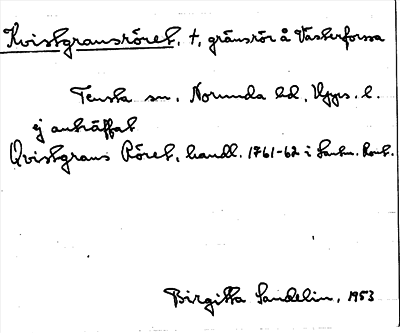 Kvistgransröret, †, gränsrör å Västerforsa
Tensta sn. Norunda hd, Upps. l.
ej anträffat
Qvistgrans Röret, handl. 1761-62 i Lantm. Kont.
Birgitta Sandelin, 1953